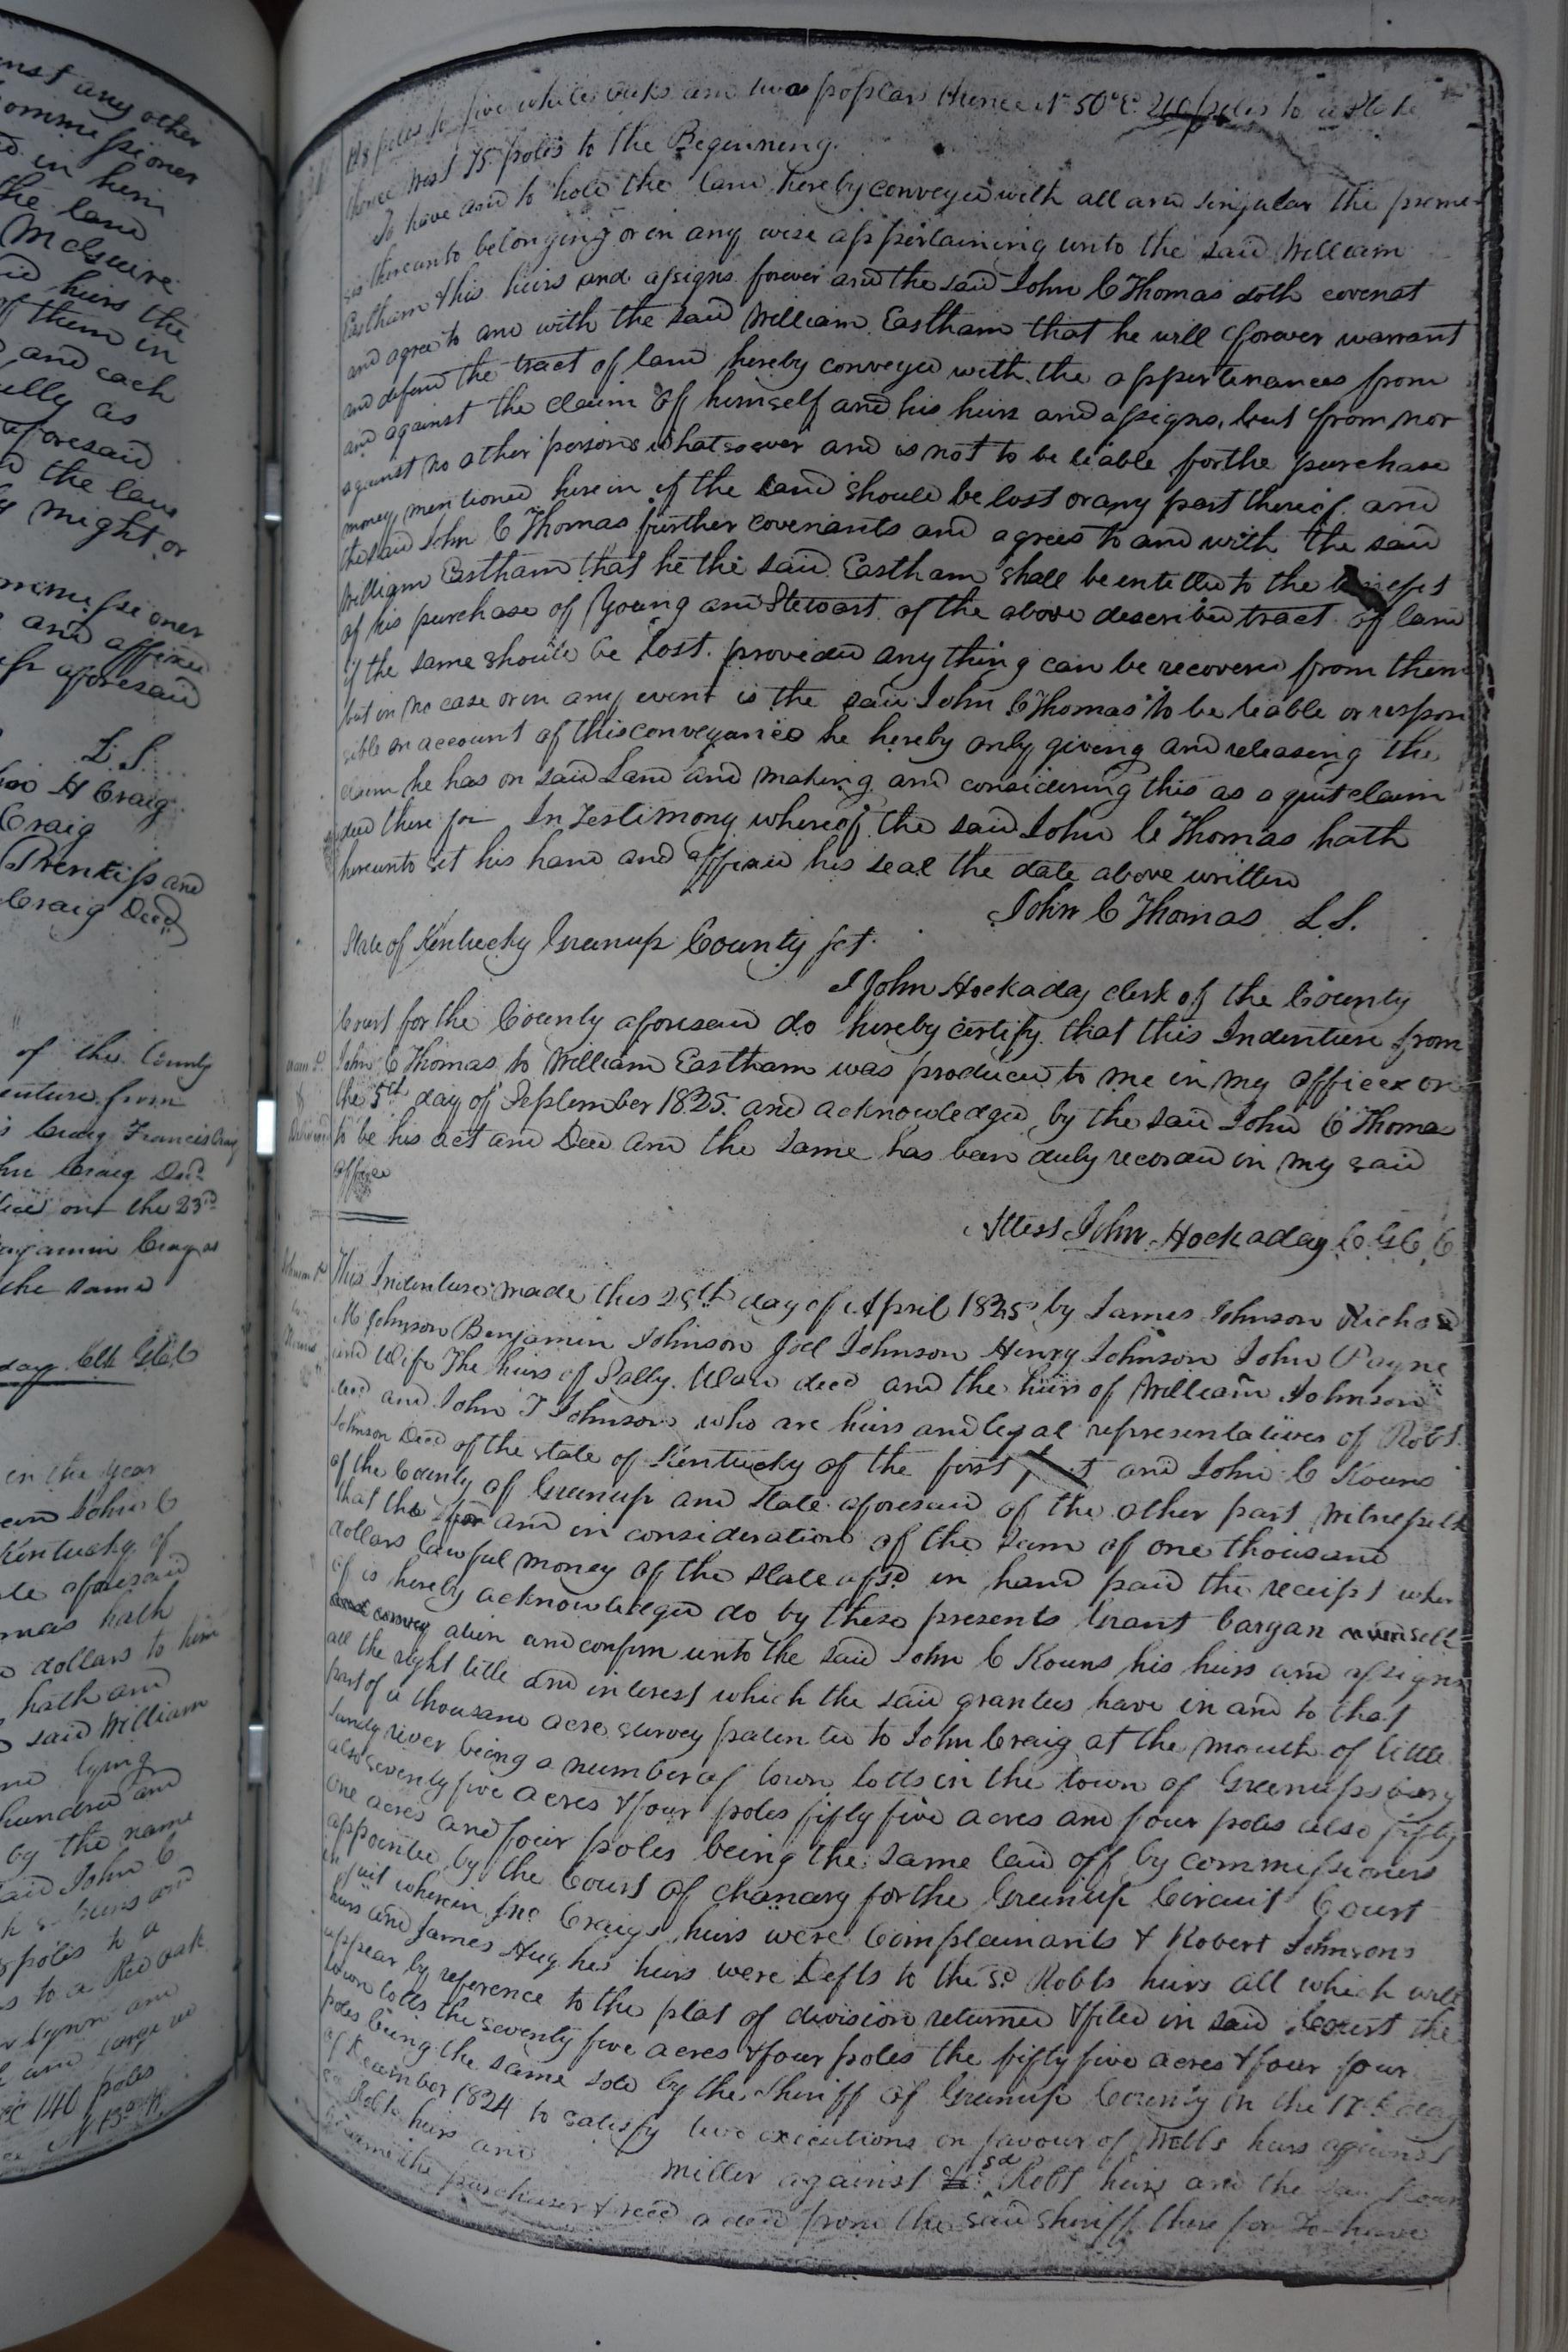 inst any other
ommissioner
d in him
the land
McGuire
id heirs the
of them in
and each
ully as
aforesaid
d the law
y might or
mmissioner
and affixed
aforesaid
L.S.
H Craig
Craig
Prentiss and
Craig Decd
of the County
enture from
Craig Francis Craig
Craig Decd
on the 23rd
enjamin Craig
the same
day Clk
in the year
John C
Kentucky of
aforesaid
mas hath
dollars to him
hath and
said William
lying
hundred and
by the name
said John C
heirs and
poles to a
to a Red oak
Lynn and
140 poles
N 13° W
poles to five white oaks and two poplars thence N 50° E 210 poles to a Stake
thence West 75 poles to the Beginning.
To have and to hold the land hereby conveyed with all and singular the premi-
ses thereunto belonging or in any wise appertaining unto the said William
Eastham & his heirs and assigns forever and the said John C Thomas doth covenat
and agree to and with the said William Eastham that he will forever warrant
and defend the tract of land hereby conveyed with the appertinances from
and against the claim of himself and his heirs and assigns, but from nor
against no other persons whatsoever and is not to be liable for the purchase
money mentioned herein if the land should be lost or any part thereof. and
the said John C Thomas further covenants and agrees to and with the said
William Eastham that he the said Eastham shall be entitled to the
of his purchase of Young and Stewart of the above described tract of land
if the same should be lost. provided any thing can be recovered from them
but in no case or in any event is the said John C Thomas to be liable or respon
sible on account of this conveyance he hereby only giving and releasing the
claim he has on said Land and making and considering this as a quit claim
deed there for In Testimony whereof the said John C Thomas hath
hereunto set his hand and affixed his seal the date above written
John C Thomas L.S.
State of Kentucky Greenup County sct.
I John Hockaday clerk of the County
Court for the County aforesaid do hereby certify that this Indenture from
John C Thomas to William Eastham was produced to me in my office on
the 5th day of September 1825. and acknowledged by the said John C Thomas
to be his act and Deed and the same has been duly recorded in my said
office
Attest John Hockaday C.G.C.C.
This Indenture made this 25th day of April 1825 by James Johnson Richard
M Johnson Benjamin Johnson Joel Johnson Henry Johnson John Payne
and Wife The heirs of Sally Ward decd and the heirs of William Johnson
decd and John T Johnson who are heirs and legal representatives of Robt.
Johnson Decd of the state of Kentucky of the first part and John C Kouns
of the County of Greenup and State aforesaid of the other part Witnesseth
that the for and in consideration of the sum of one thousand
dollars lawful money of the state afsd in hand paid the receipt wher
of is hereby acknowledged do by these presents Grant bargan sell
and convey alien and confirm unto the said John C Kouns his heirs and assigns
all the right title and interest which the said grantees have in and to that
part of a thousand acre survey patented to John Craig at the mouth of little
Sandy river being a number of town lotts in the town of Greenupsburg
also seventy five acres & four poles fifty five acres and four poles also fifty
one acres and four poles being the same laid off by commissioners
appointed by the Court of chancery for the Greenup Circuit Court
in suit wherein Jno Craigs heirs were Complainants & Robert Johnsons
heirs and James Hughes heirs were Defts to the sd Robts heirs all which will
appear by reference to the plat of division returned & filed in said Court the
town lotts the seventy five acres & four poles the fifty five acres & four four
poles being the same sold by the Sheriff of Greenup County in the 17th day
of December 1824 to satisfy two executions in favour of heirs against
sd Robts heirs and Miller against sd Robt heirs and the said Kouns
became the purchaser & recd a deed from the said sheriff there for To have